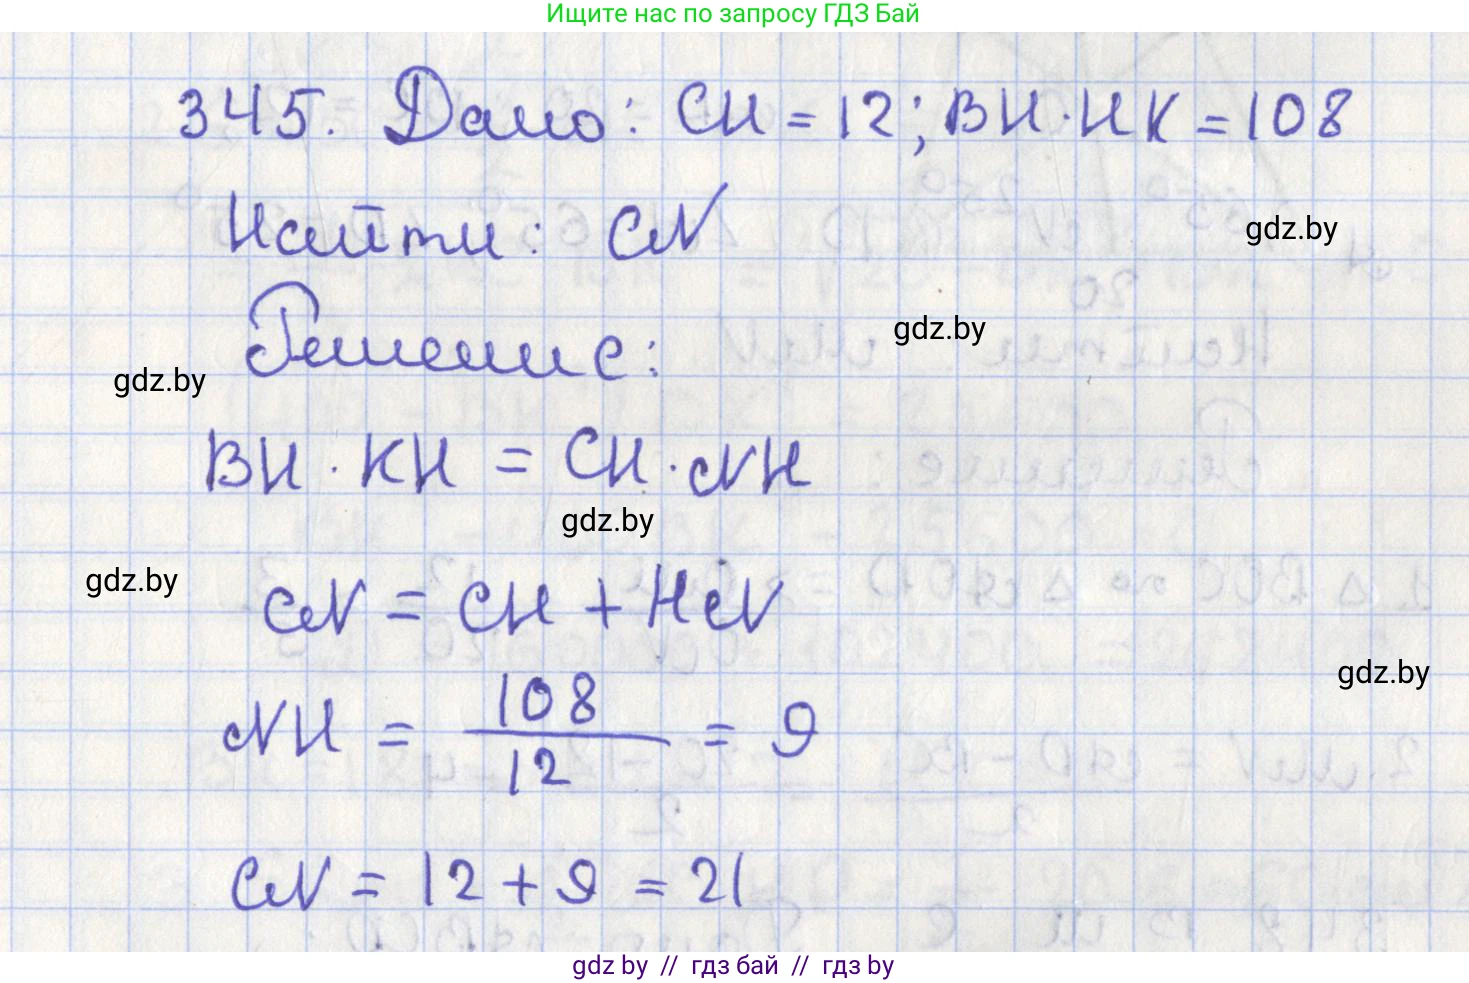 Ищите нас по запросу ГДЗ Бай
345. Дано: CH = 12; BH · HK = 108
Найти: CN
gdz.by
Решение:
gdz.by
gdz.by
BH · KH = CH · NH
gdz.by
gdz.by
CN = CH + HN
gdz.by
NH = 108/12 = 9
CN = 12 + 9 = 21
gdz by // гдз бай // гдз by